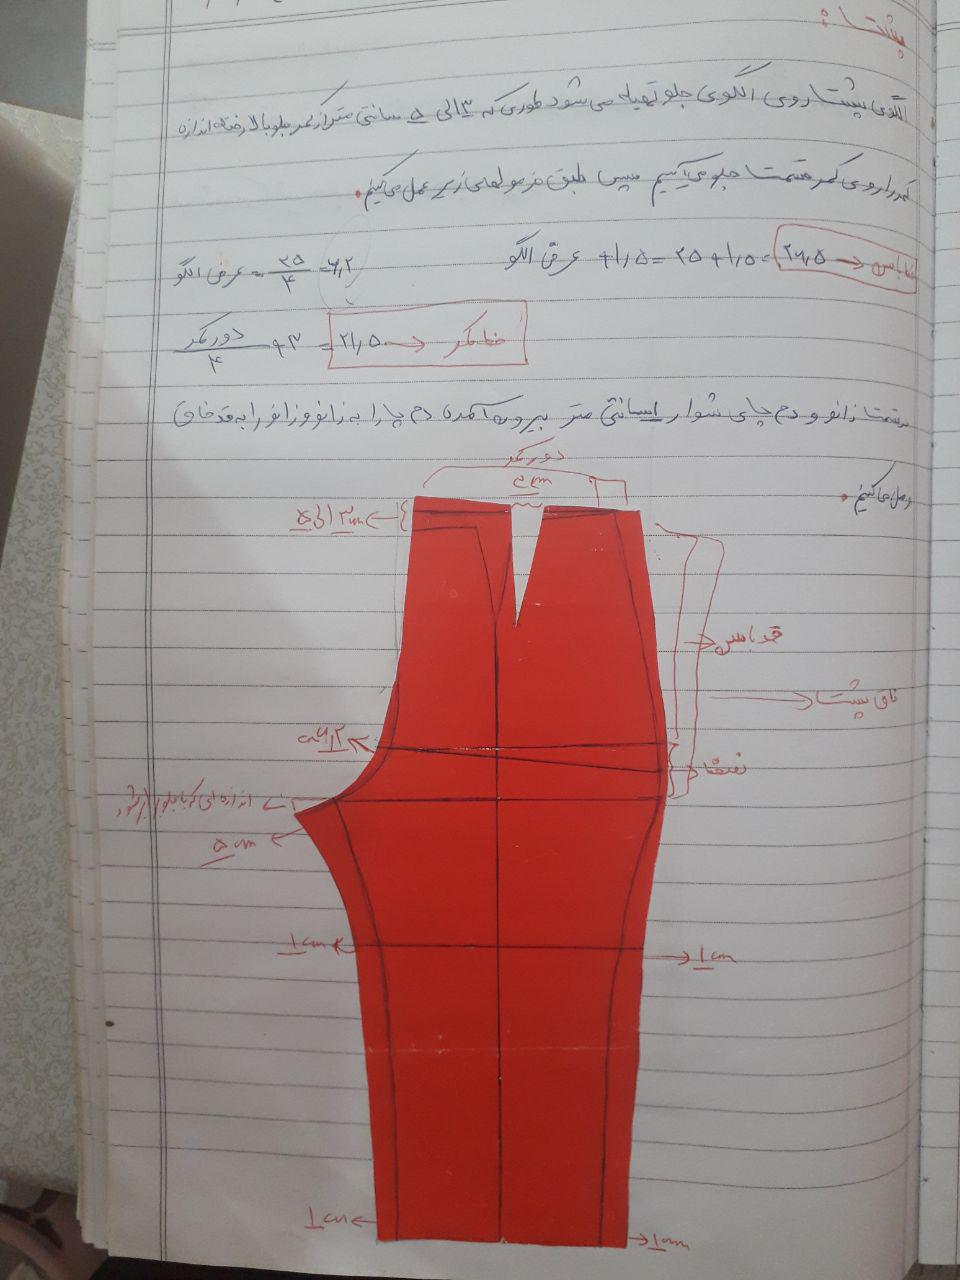 پشت:
الگوی پشت روی الگوی جلو تهیه می شود طوری که ۳ الی ۵ سانتی متر از کمر جلو بالا رفته اندازه
کمر را روی کمر قسمت جلو می آییم سپس طبق فرمولهای زیر عمل می کنیم.
عرض الگو + ۱٫۵ = ۲۵ + ۱٫۵ = ۲۶٫۵ → خط باسن
عرض الگو = ۲۵/۴ = ۶٫۲
دور کمر/۴ + ۳ = ۲۱٫۵ → خط کمر
قسمت زانو و دم پای شلوار ۱ سانتی متر بیرون آمده دم پا را به زانو و زانو را به قد فاق
وصل می کنیم.
دور کمر
۳cm
۳ الی ۵cm
قد باسن
فاق پشت
۶٫۲cm
اندازه ای که با جلو
۵cm
۱cm
۱cm
۱cm
۱cm